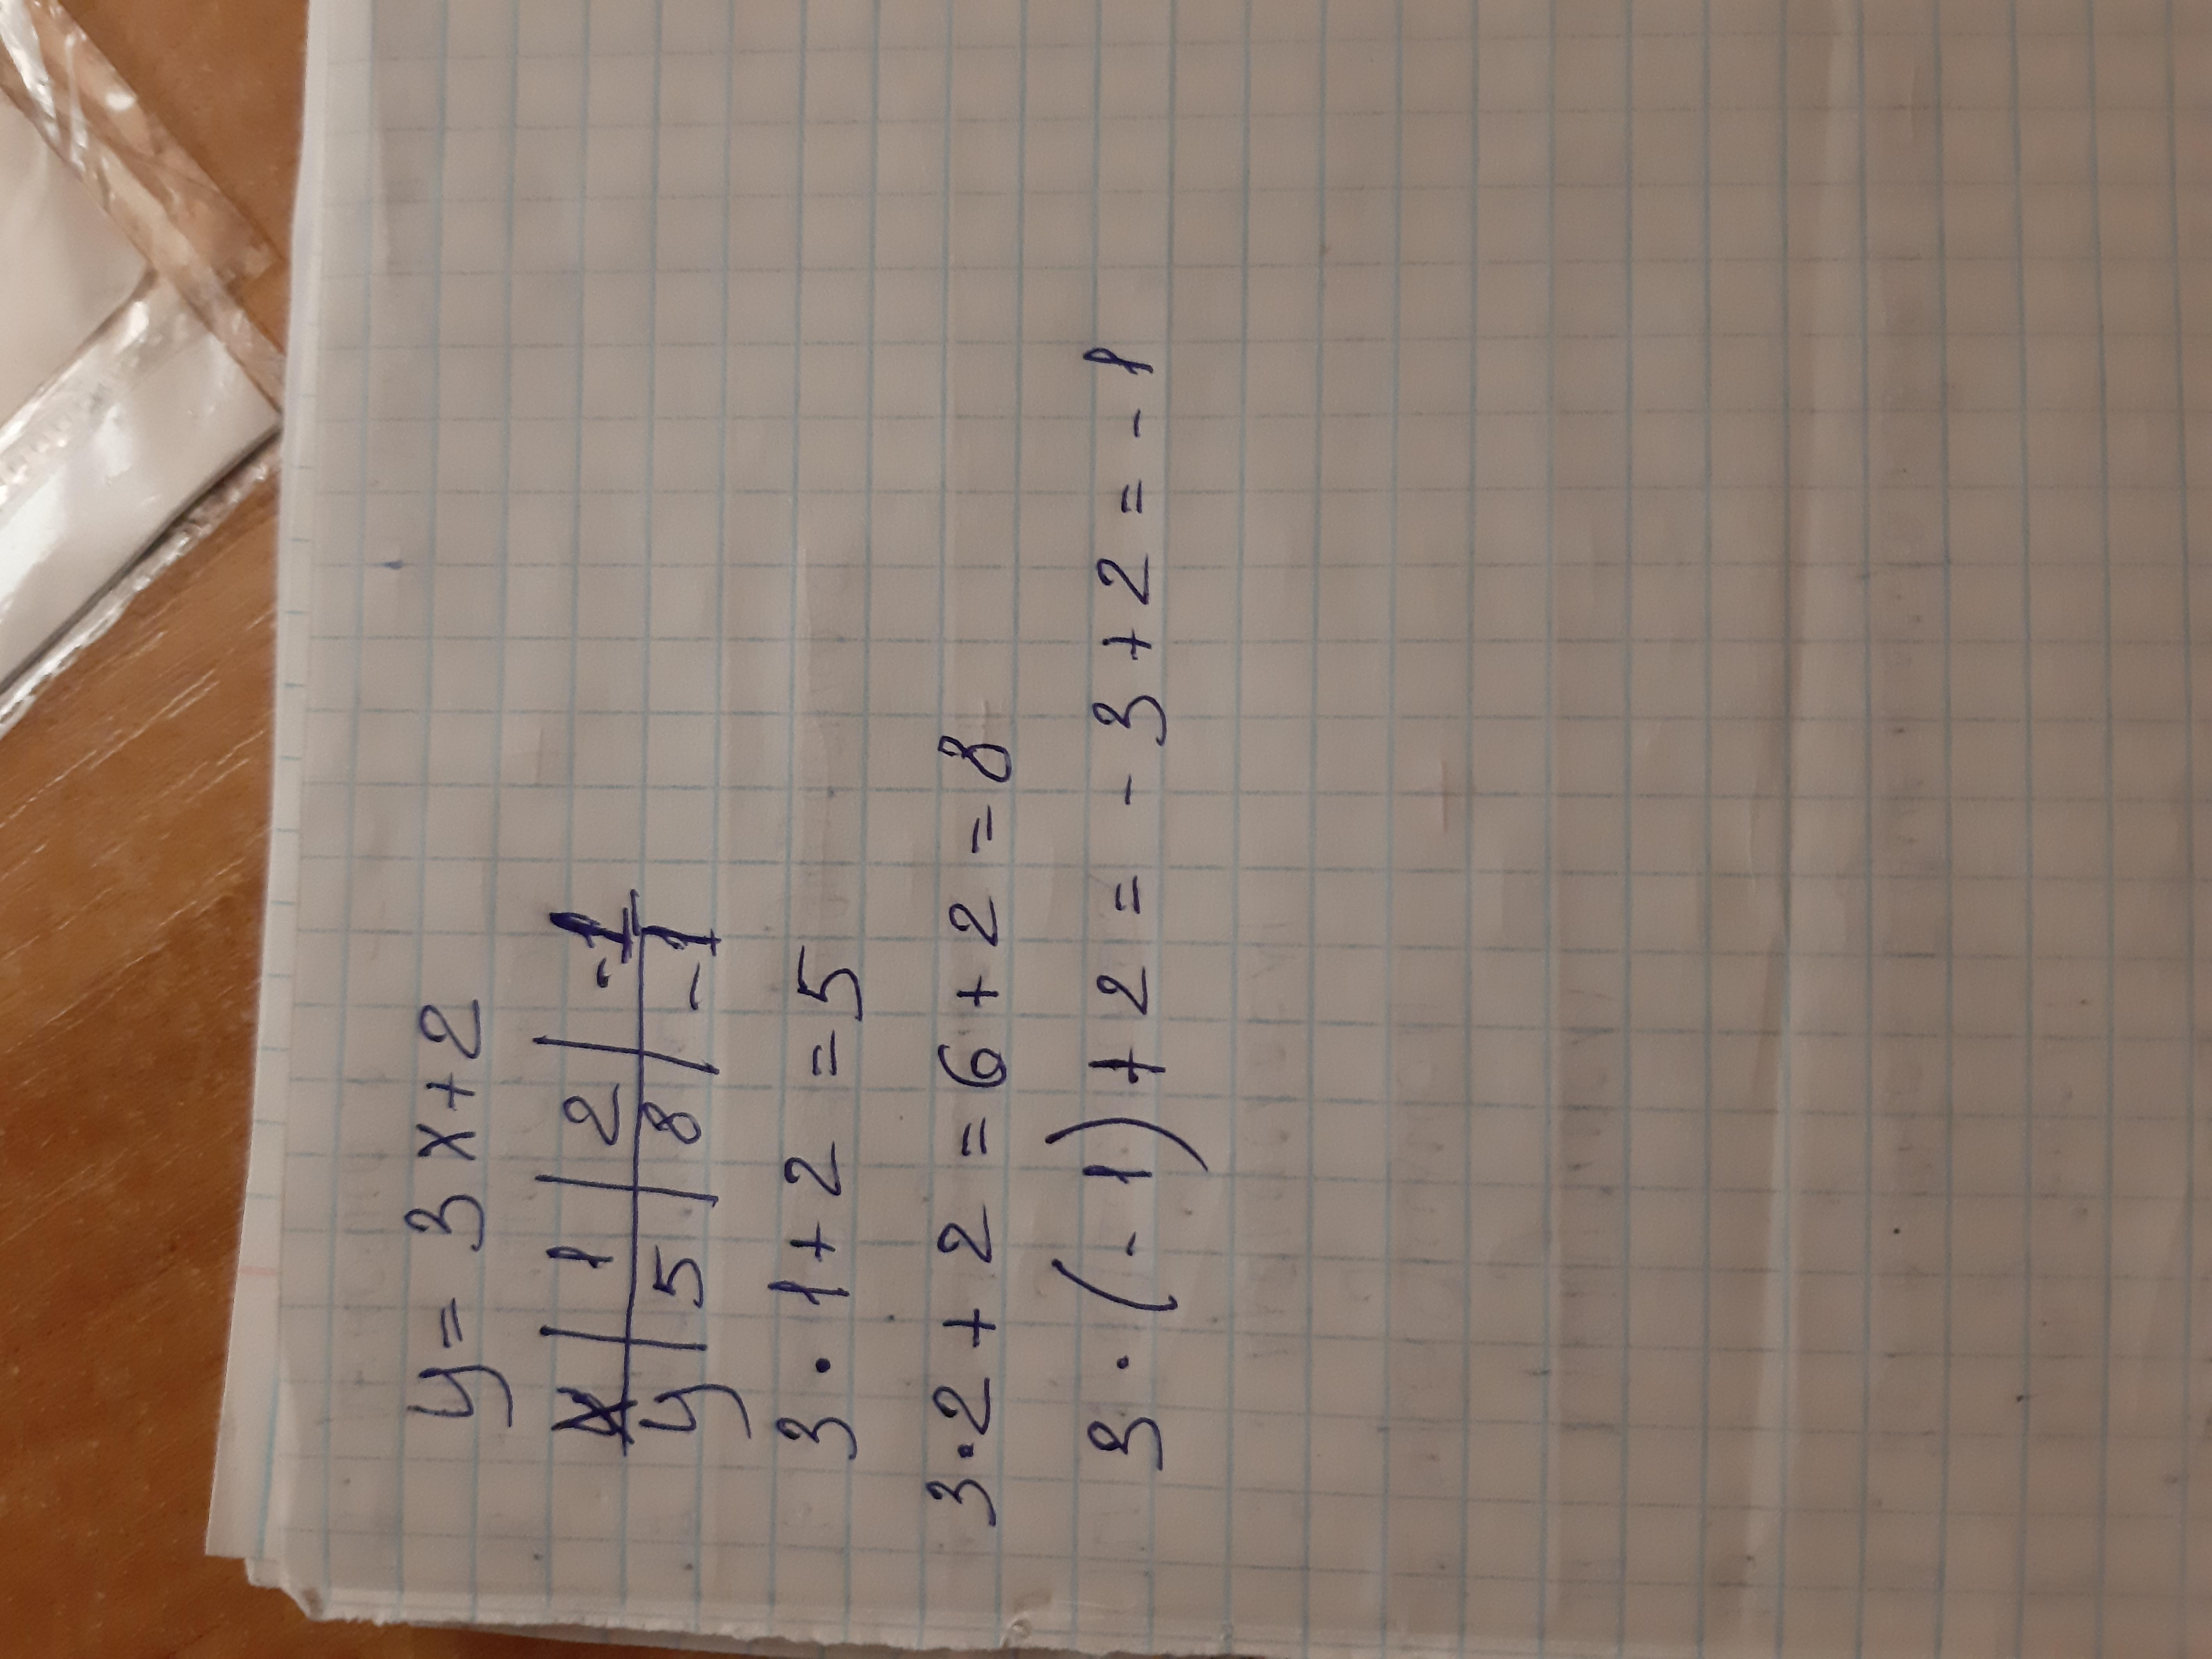 y = 3x+2
x | 1 | 2 | -1
y | 5 | 8 | -1
3 · 1 + 2 = 5
3·2 + 2 = 6 + 2 = 8
3 · (-1) + 2 = - 3 + 2 = - 1